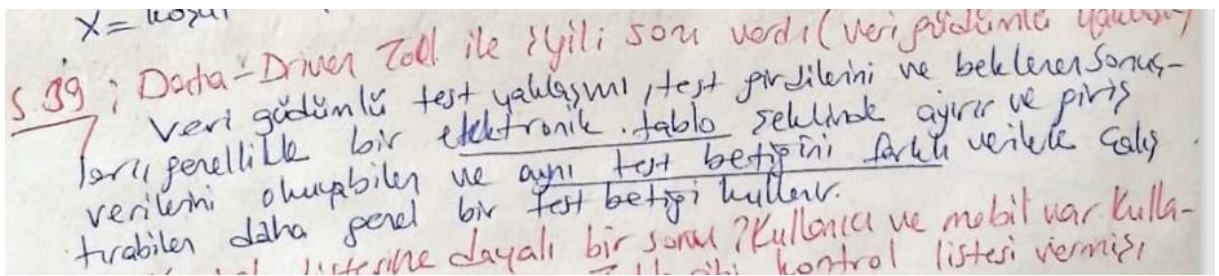 X= koşul
S 39; Data-Driven Tool ile ilgili soru vardı (veri güdümlü yaklaşım)
Veri güdümlü test yaklaşımı, test girdilerini ve beklenen sonuç-
ları genellikle bir elektronik tablo şeklinde ayırır ve giriş
verilerini okuyabilen ve aynı test betiğini farklı verilerle çalış
tırabilen daha genel bir test betiği kullanır.
listerine dayalı bir soru? Kullanıcı ve mobil var Kulla-
kontrol listesi vermiş,